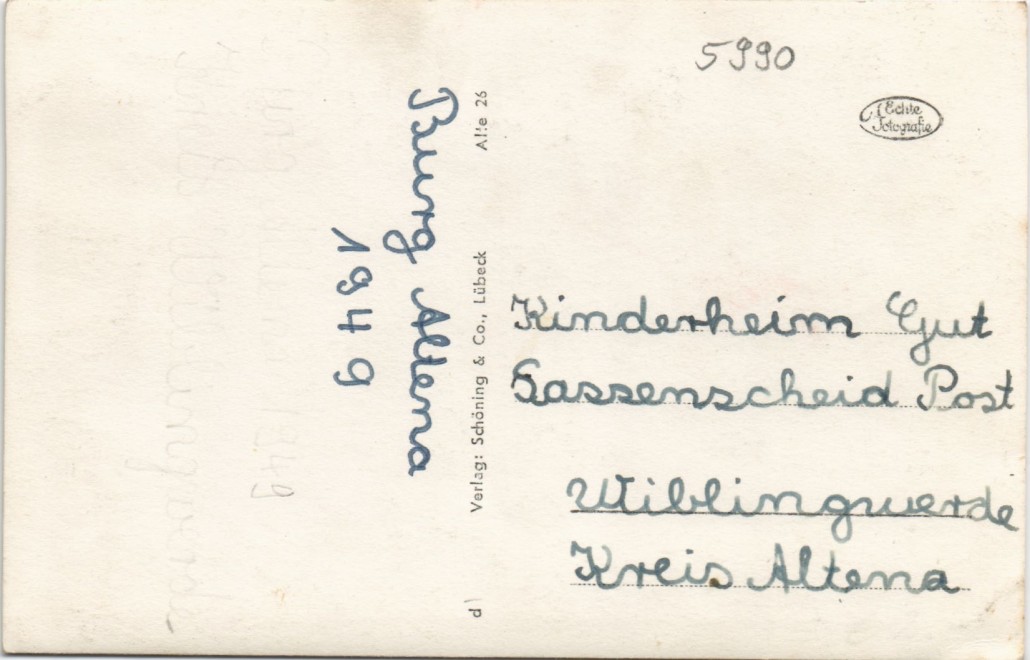 5990
Echte
Fotografie
Burg Altena
1949
Alte 26
Verlag: Schöning & Co., Lübeck
d
Kinderheim Gut
Sassenscheid Post
Wiblingwerde
Kreis Altena